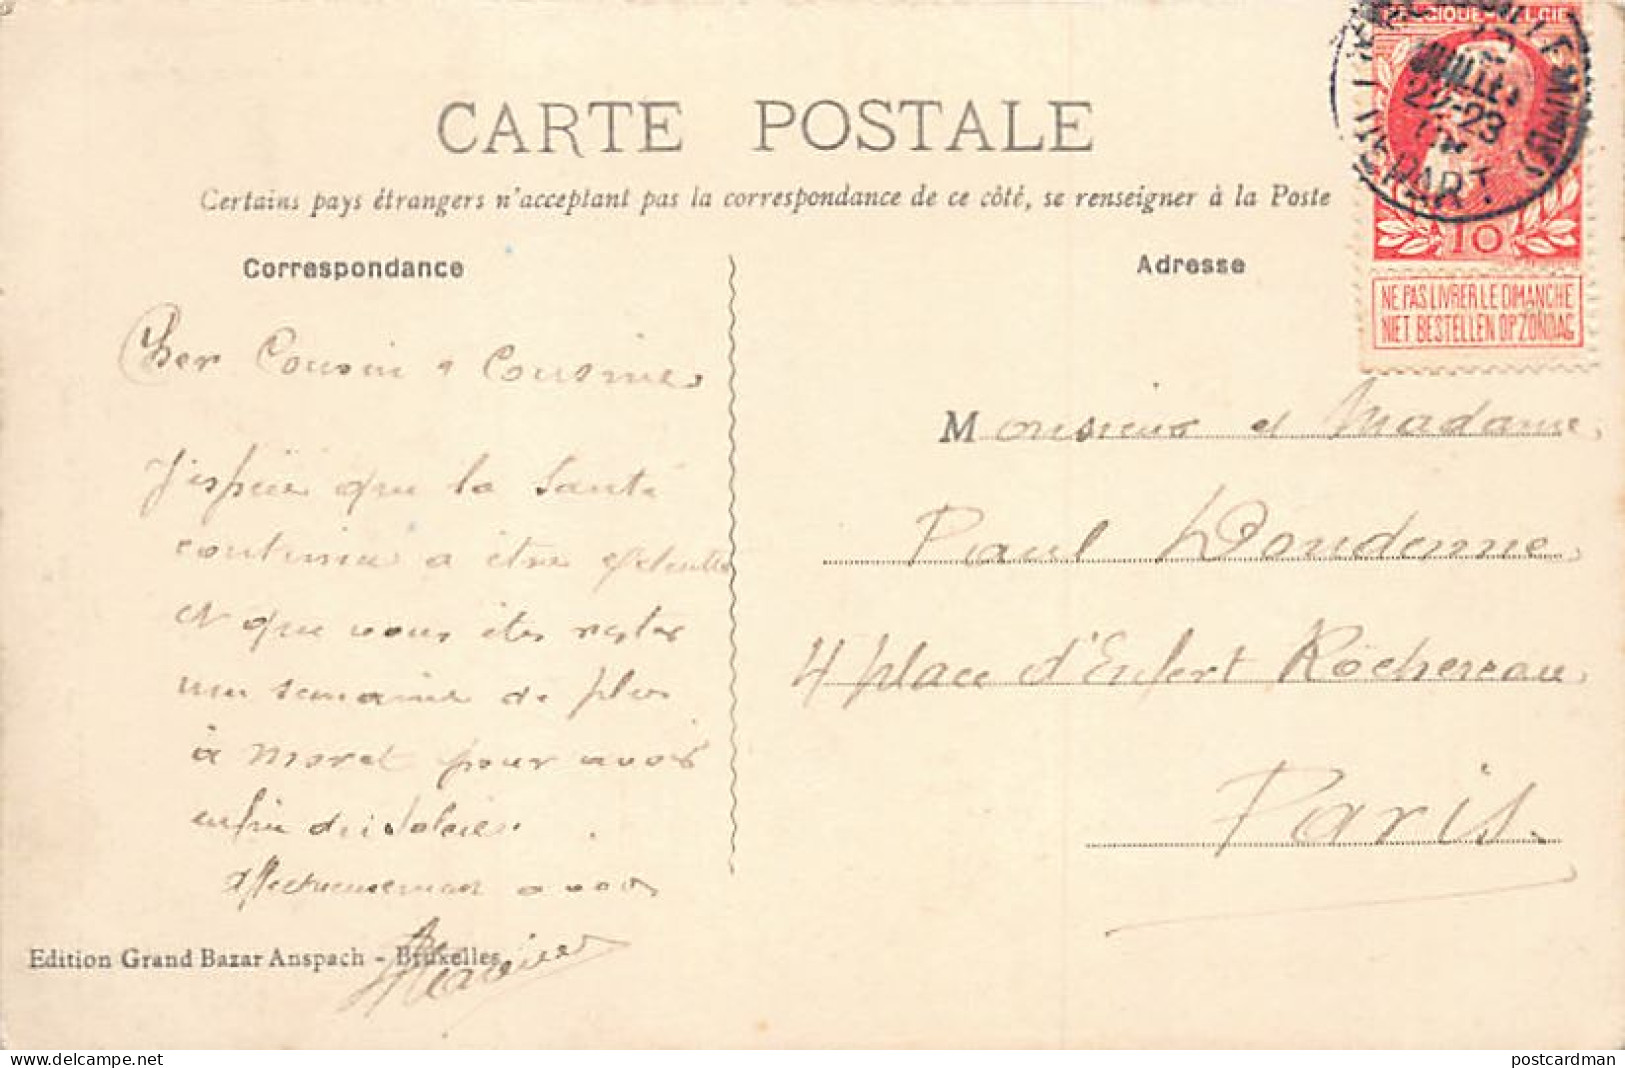 CARTE POSTALE
Certains pays étrangers n'acceptant pas la correspondance de ce côté, se renseigner à la Poste
Correspondance
Adresse
BELGIQUE - BELGIE
JUILLET
22-23
DÉPART
10
NE PAS LIVRER LE DIMANCHE
NIET BESTELLEN OP ZONDAG
Cher Cousin & Cousine,
J'espère que la santé
continue a être excellente
et que vous êtes restés
une semaine de plus
à Moret pour avoir
enfin du soleil.
Affectueusement a vous
Monsieur et Madame
Paul Doudenne
4 place d'Enfert Rochereau
Paris.
Edition Grand Bazar Anspach - Bruxelles
postcardman